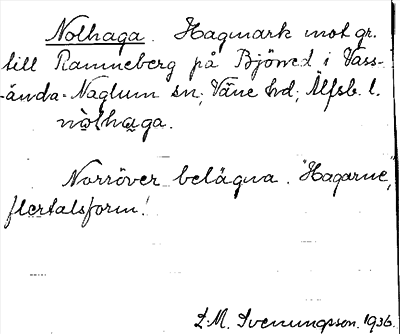 Nolhaga. Hagmark mot gr.
till Ramneberg på Björned i Vass-
-ända-Naglum sn; Väne hd; Älfsb. l.
nọ̀lhạga.
Norröver belägna. "Hagarne",
flertalsform!
L.M. Svenungsson. 1936.